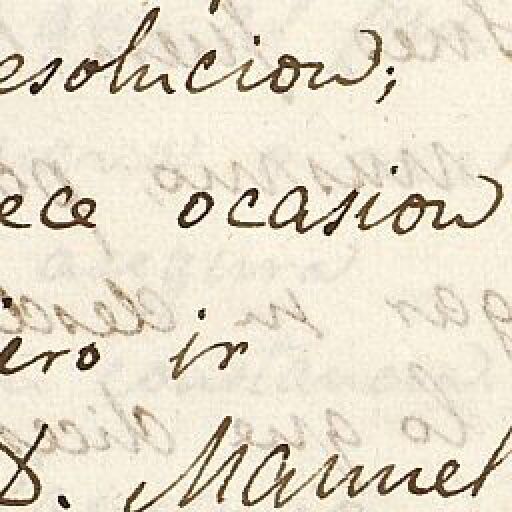 esolucion;
ece ocasion
ero ir
D. Manuel